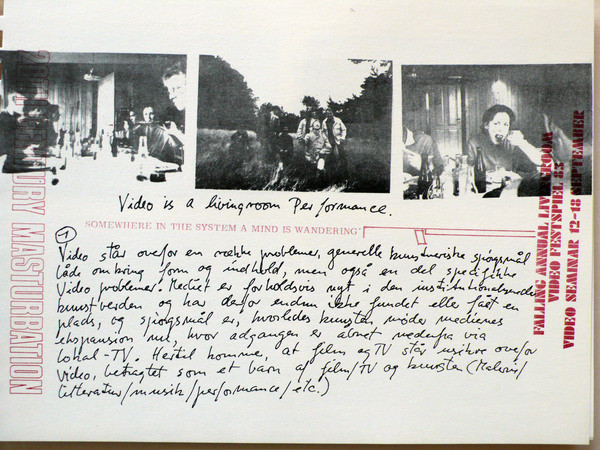 20TH CENTURY MASTURBATION
Video is a livingroom Performance.
SOMEWHERE IN THE SYSTEM A MIND IS WANDERING
1
Video står overfor en række problemer, generelle kunstneriske spørgsmål
både omkring form og indhold, men også en del specifikke
Video problemer. Mediet er forholdsvis nyt i den institutionaliserede
kunstverden og har derfor endnu ikke fundet eller fået en
plads, og spørgsmål er, hvorledes kunsten møder mediernes
ekspansion nu, hvor adgangen er åbnet nedefra via
Lokal-TV. Hertil kommer, at film og TV står usikre overfor
Video, betragtet som et barn af film/TV og kunsten (Maleri/
litteratur/musik/performance/etc.)
FALLING ANNUAL LIVINGROOM
VIDEO FESTSPIEL 83
VIDEO SEMINAR 12-18 SEPTEMBER